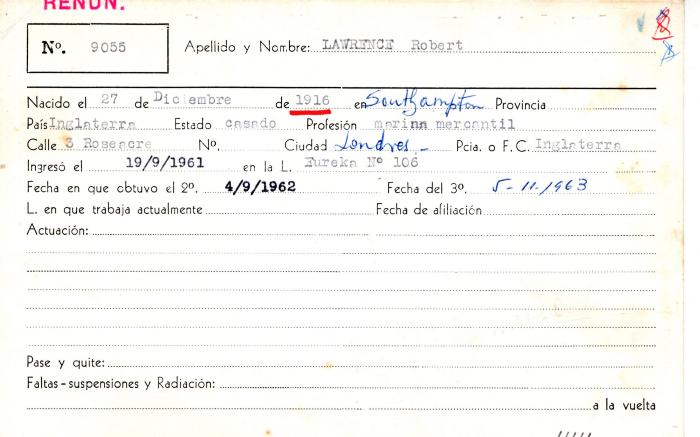 RENUN.
Nº. 9055 Apellido y Nombre: LAWRENCE Robert
Nacido el 27 de Diciembre de 1916 en Southampton Provincia
País Inglaterra Estado casado Profesión marina mercantil
Calle 3 Roseacre Nº. Ciudad Londres.- Pcia. o F.C. Inglaterra
Ingresó el 19/9/1961 en la L. Eureka Nº 106
Fecha en que obtuvo el 2º. 4/9/1962 Fecha del 3º. 5-11-/963
L. en que trabaja actualmente Fecha de afiliación
Actuación:
Pase y quite:
Faltas-suspensiones y Radiación:
a la vuelta